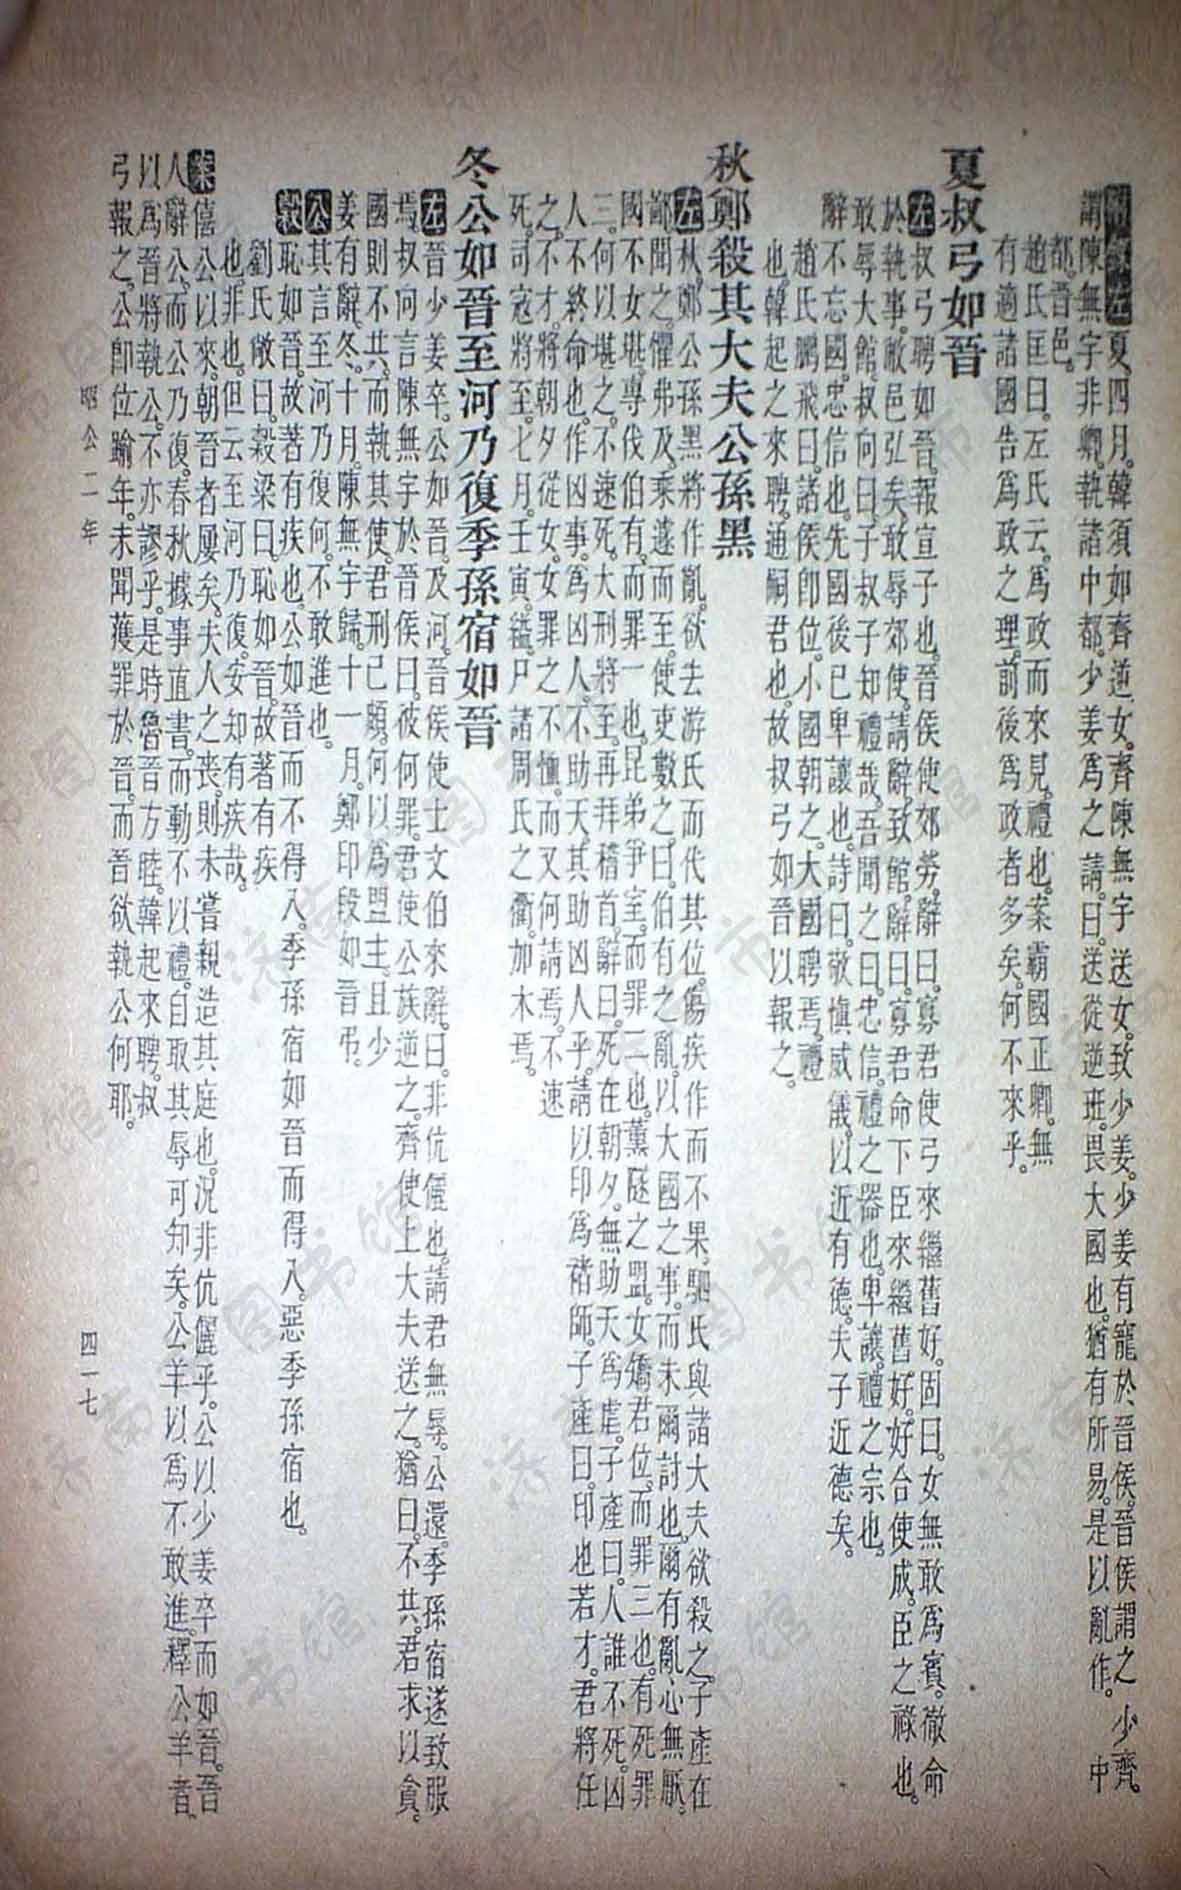 附錄左夏四月韓須如齊逆女齊陳無宇送女致少姜少姜有寵於晉侯晉侯謂之少齊
謂陳無宇非卿執諸中都少姜爲之請曰送從逆班畏大國也猶有所易是以亂作中
都晉邑
趙氏匡曰左氏云爲政而來見禮也案霸國正卿無
有適諸國告爲政之理前後爲政者多矣何不來乎
夏叔弓如晉
左叔弓聘如晉報宣子也晉侯使郊勞辭曰寡君使弓來繼舊好固曰女無敢爲賓徹命
於執事敝邑弘矣敢辱郊使請辭致館辭曰寡君命下臣來繼舊好好合使成臣之祿也
敢辱大館叔向曰子叔子知禮哉吾聞之曰忠信禮之器也卑讓禮之宗也
辭不忘國忠信也先國後己卑讓也詩曰敬愼威儀以近有德夫子近德矣
趙氏鵬飛曰諸侯卽位小國朝之大國聘焉禮
也韓起之來聘通嗣君也故叔弓如晉以報之
秋鄭殺其大夫公孫黑
左秋鄭公孫黑將作亂欲去游氏而代其位傷疾作而不果駟氏與諸大夫欲殺之子產在
鄙聞之懼弗及乘遽而至使吏數之曰伯有之亂以大國之事而未爾討也爾有亂心無厭
國不女堪專伐伯有而罪一也昆弟爭室而罪二也薰隧之盟女矯君位而罪三也有死罪
三何以堪之不速死大刑將至再拜稽首辭曰死在朝夕無助天爲虐子產曰人誰不死凶
人不終命也作凶事爲凶人不助天其助凶人乎請以印爲褚師子產曰印也若才君將任
之不才將朝夕從女女罪之不恤而又何請焉不速
死司寇將至七月壬寅縊尸諸周氏之衢加木焉
冬公如晉至河乃復季孫宿如晉
左晉少姜卒公如晉及河晉侯使士文伯來辭曰非伉儷也請君無辱公還季孫宿遂致服
焉叔向言陳無宇於晉侯曰彼何罪君使公族逆之齊使上大夫送之猶曰不共君求以貪
國則不共而執其使君刑已頗何以爲盟主且少
姜有辭冬十月陳無宇歸十一月鄭印段如晉弔
公其言至河乃復何不敢進也
穀恥如晉故著有疾也公如晉而不得入季孫宿如晉而得入惡季孫宿也
劉氏敞曰穀梁曰恥如晉故著有疾
也非也但云至河乃復安知有疾哉
案僖公以來朝晉者屢矣夫人之喪則未嘗親造其庭也況非伉儷乎公以少姜卒而如晉晉
人辭公而公乃復春秋據事直書而動不以禮自取其辱可知矣公羊以爲不敢進釋公羊者
以爲晉將執公不亦謬乎是時魯晉方睦韓起來聘叔
弓報之公卽位踰年未聞獲罪於晉而晉欲執公何耶
昭公二年 四一七